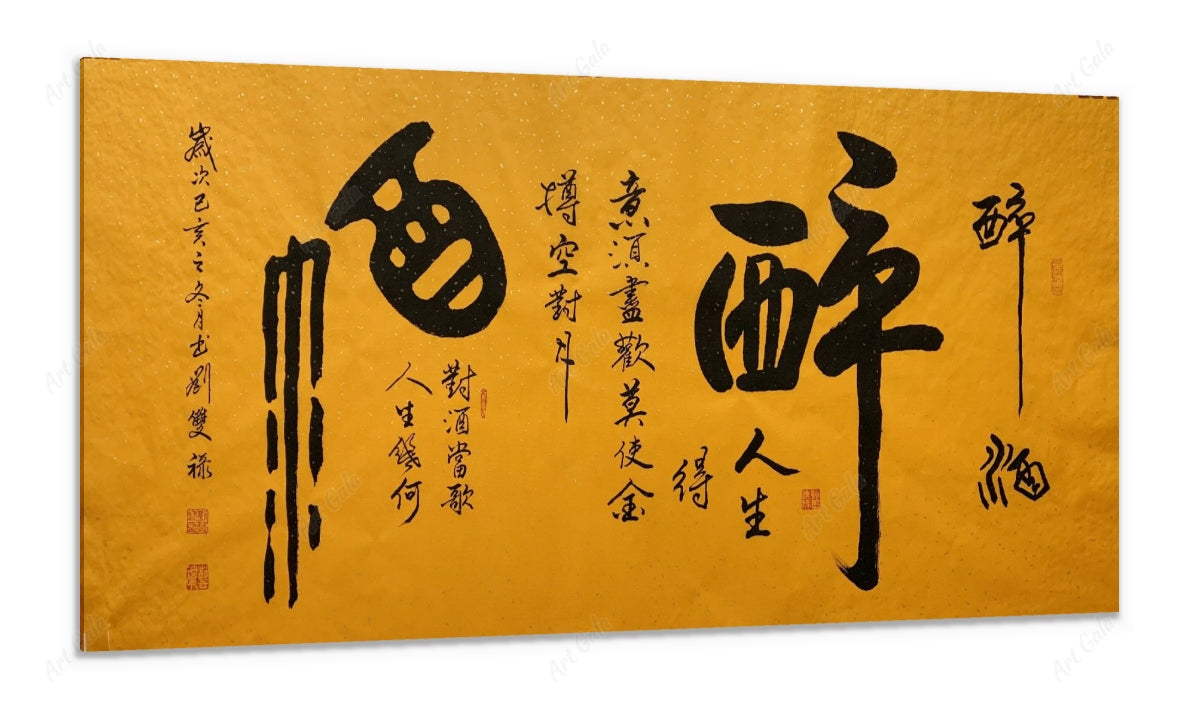 醉酒
醉
人生
得
意須盡歡莫使金
樽空對月
酒
對酒當歌
人生幾何
歲次己亥之冬月书劉雙禄
Art Gala